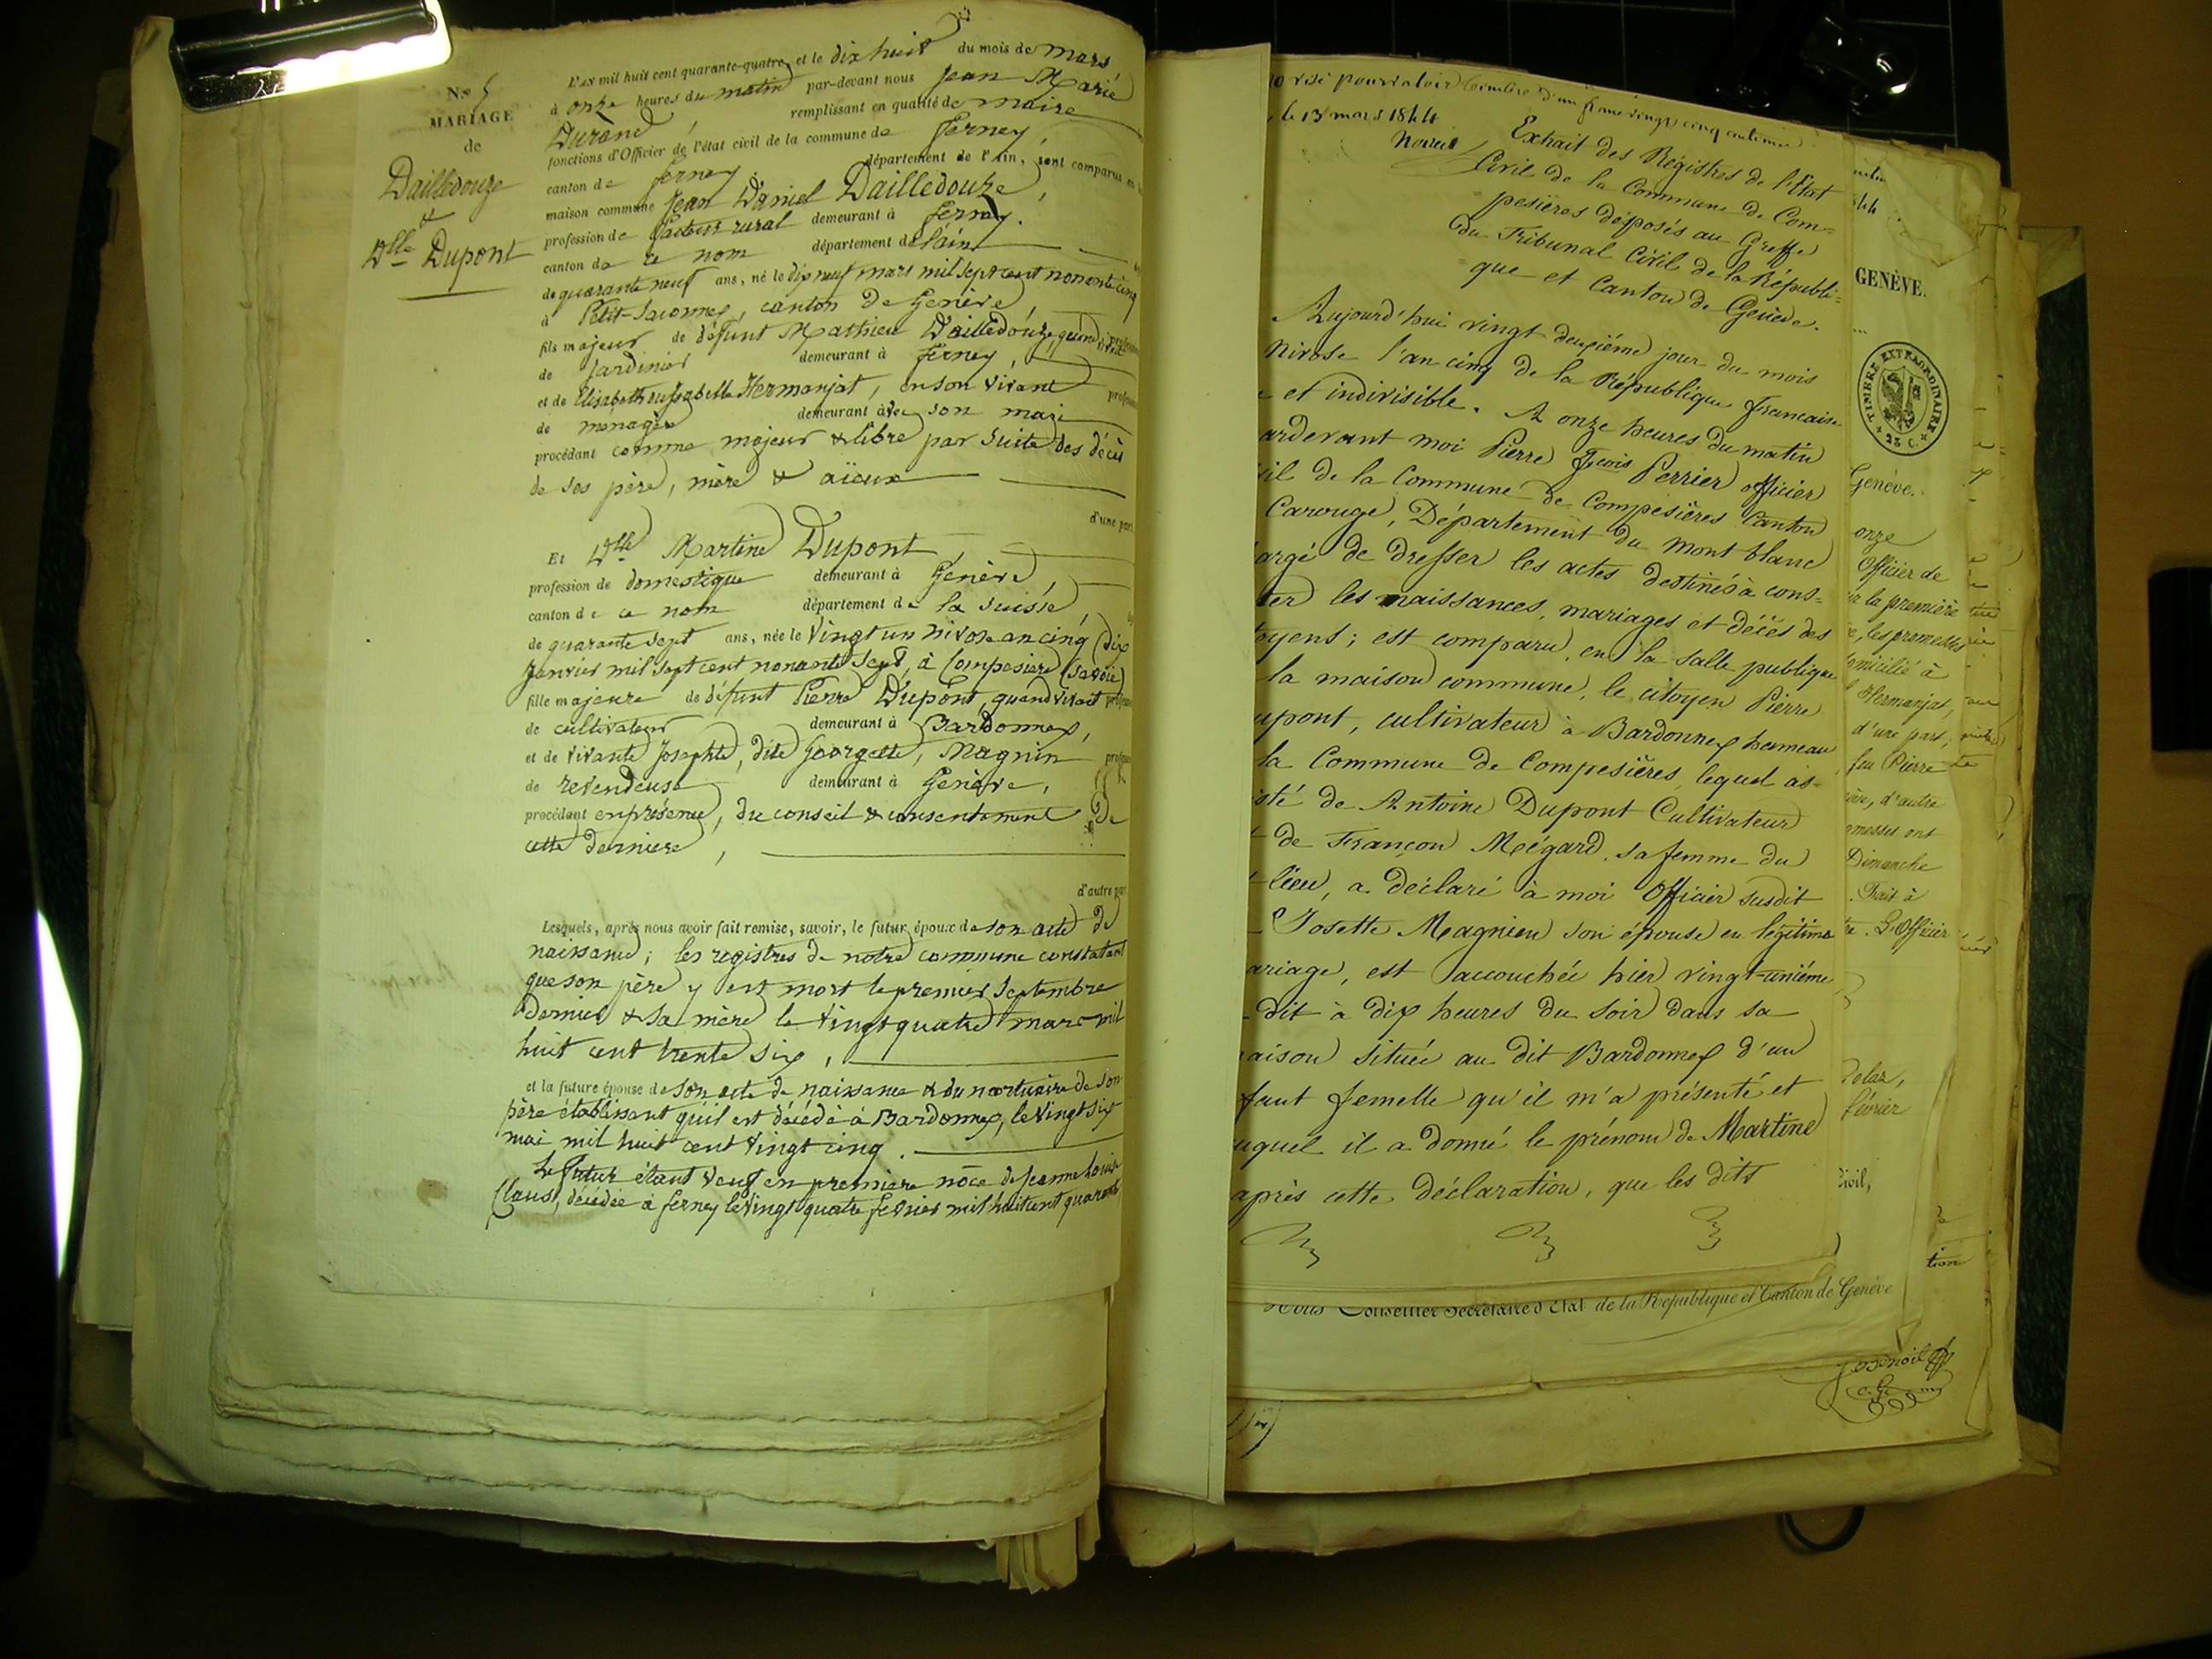 N.o 5
MARIAGE
de
Dailledouze
&
Dlle Dupont
L'an mil huit cent quarante-quatre, et le dix huit du mois de mars
à onze heures du matin par-devant nous Jean Marie
Durand, remplissant en qualité de maire
fonctions d'Officier de l'état civil de la commune de Ferney,
canton de Ferney, département de l'Ain, sont comparus en
maison commune Jean Daniel Dailledouze,
profession de facteur rural demeurant à Ferney.
canton de ce nom département de l'ain
de quarante neuf ans, né le dix neuf mars mil sept cent nonante cinq
à Petit-Saconnex, canton de Genève
fils majeur de défunt Mathieu Dailledouze, quand vivait
de jardinier demeurant à Ferney,
et de Elisabeth ou Isabelle Hermanjat, en son vivant
de ménagère demeurant avec son mari
procédant comme majeur & libre par suite des décès
de ses père, mère & aïeux
d'une part
Et Dlle Martine Dupont,
profession de domestique demeurant à Genève,
canton de ce nom département de la Suisse
de quarante sept ans, née le Vingt un nivose an cinq (dix
Janvier mil sept cent nonante sept, à Compesière (Savoie)
fille majeure de défunt Pierre Dupont, quand vivait
de cultivateur demeurant à Bardonnex,
et de vivante Josephte, dite Georgette, Magnin
de revendeuse demeurant à Genève,
procédant en présence, du conseil & consentement de
cette dernière,
d'autre par
Lesquels, après nous avoir fait remise, savoir, le futur époux de son acte de
naissance; les registres de notre commune constatant
que son père y est mort le premier Septembre
dernier & sa mère le vingt quatre mars mil
huit cent trente six,
et la future épouse de son acte de naissance & du mortuaire de son
père établissant qu'il est décédé à Bardonnex, le Vingt six
mai mil huit cent vingt cinq.
Le futur étant veuf en première nôce de Jeanne Louise
Claus, décédée à ferney le Vingt quatre fevrier mil huit cent quarante
visé pour valoir timbre d'un franc vingt cinq centimes
le 13 mars 1844
Extrait des Régistres de l'Etat
Civil de la Commune de Com=
pesières déposés au Greffe
du Tribunal Civil de la Républi=
que et Canton de Genève.
Aujourd'hui vingt deuxiéme jour du mois
Nivose l'an cinq de la République francaise
et indivisible. A onze heures du matin
ardevant moi Pierre fçois Perrier officier
il de la Commune de Compesières Canton
Carouge, Département du Mont blanc
argé de dresser les actes destinés à cons=
ter les naissances, mariages et décès des
toyens; est comparu, en la salle publique
la maison commune, le citoyen Pierre
upont, cultivateur à Bardonnex hameau
la Commune de Compesières, lequel as=
isté de Antoine Dupont Cultivateur
de Françon Mégard, sa femme du
lieu, a déclaré à moi Officier susdit
Josette Magnien son épouse en légitime
ariage, est accouchée hier vingt-uniéme
dit à dix heures du soir dans sa
aison située au dit Bardonnex d'un
fant femelle qu'il m'a présenté et
uquel il a donné le prénom de Martine
après cette déclaration, que les dits
Nous Conseiller Secrétaire d'état de la République et Canton de Genève
GENÈVE.
TIMBRE EXTRAORDINAIRE
25 C.
Genève.
onze
Officier de
la première
les promesses
omicilié à
Hermanjat,
d'une part,
feu Pierre
d'autre
omesses ont
Dimanche
Fait à
L'Officier
février
Civil,
tion